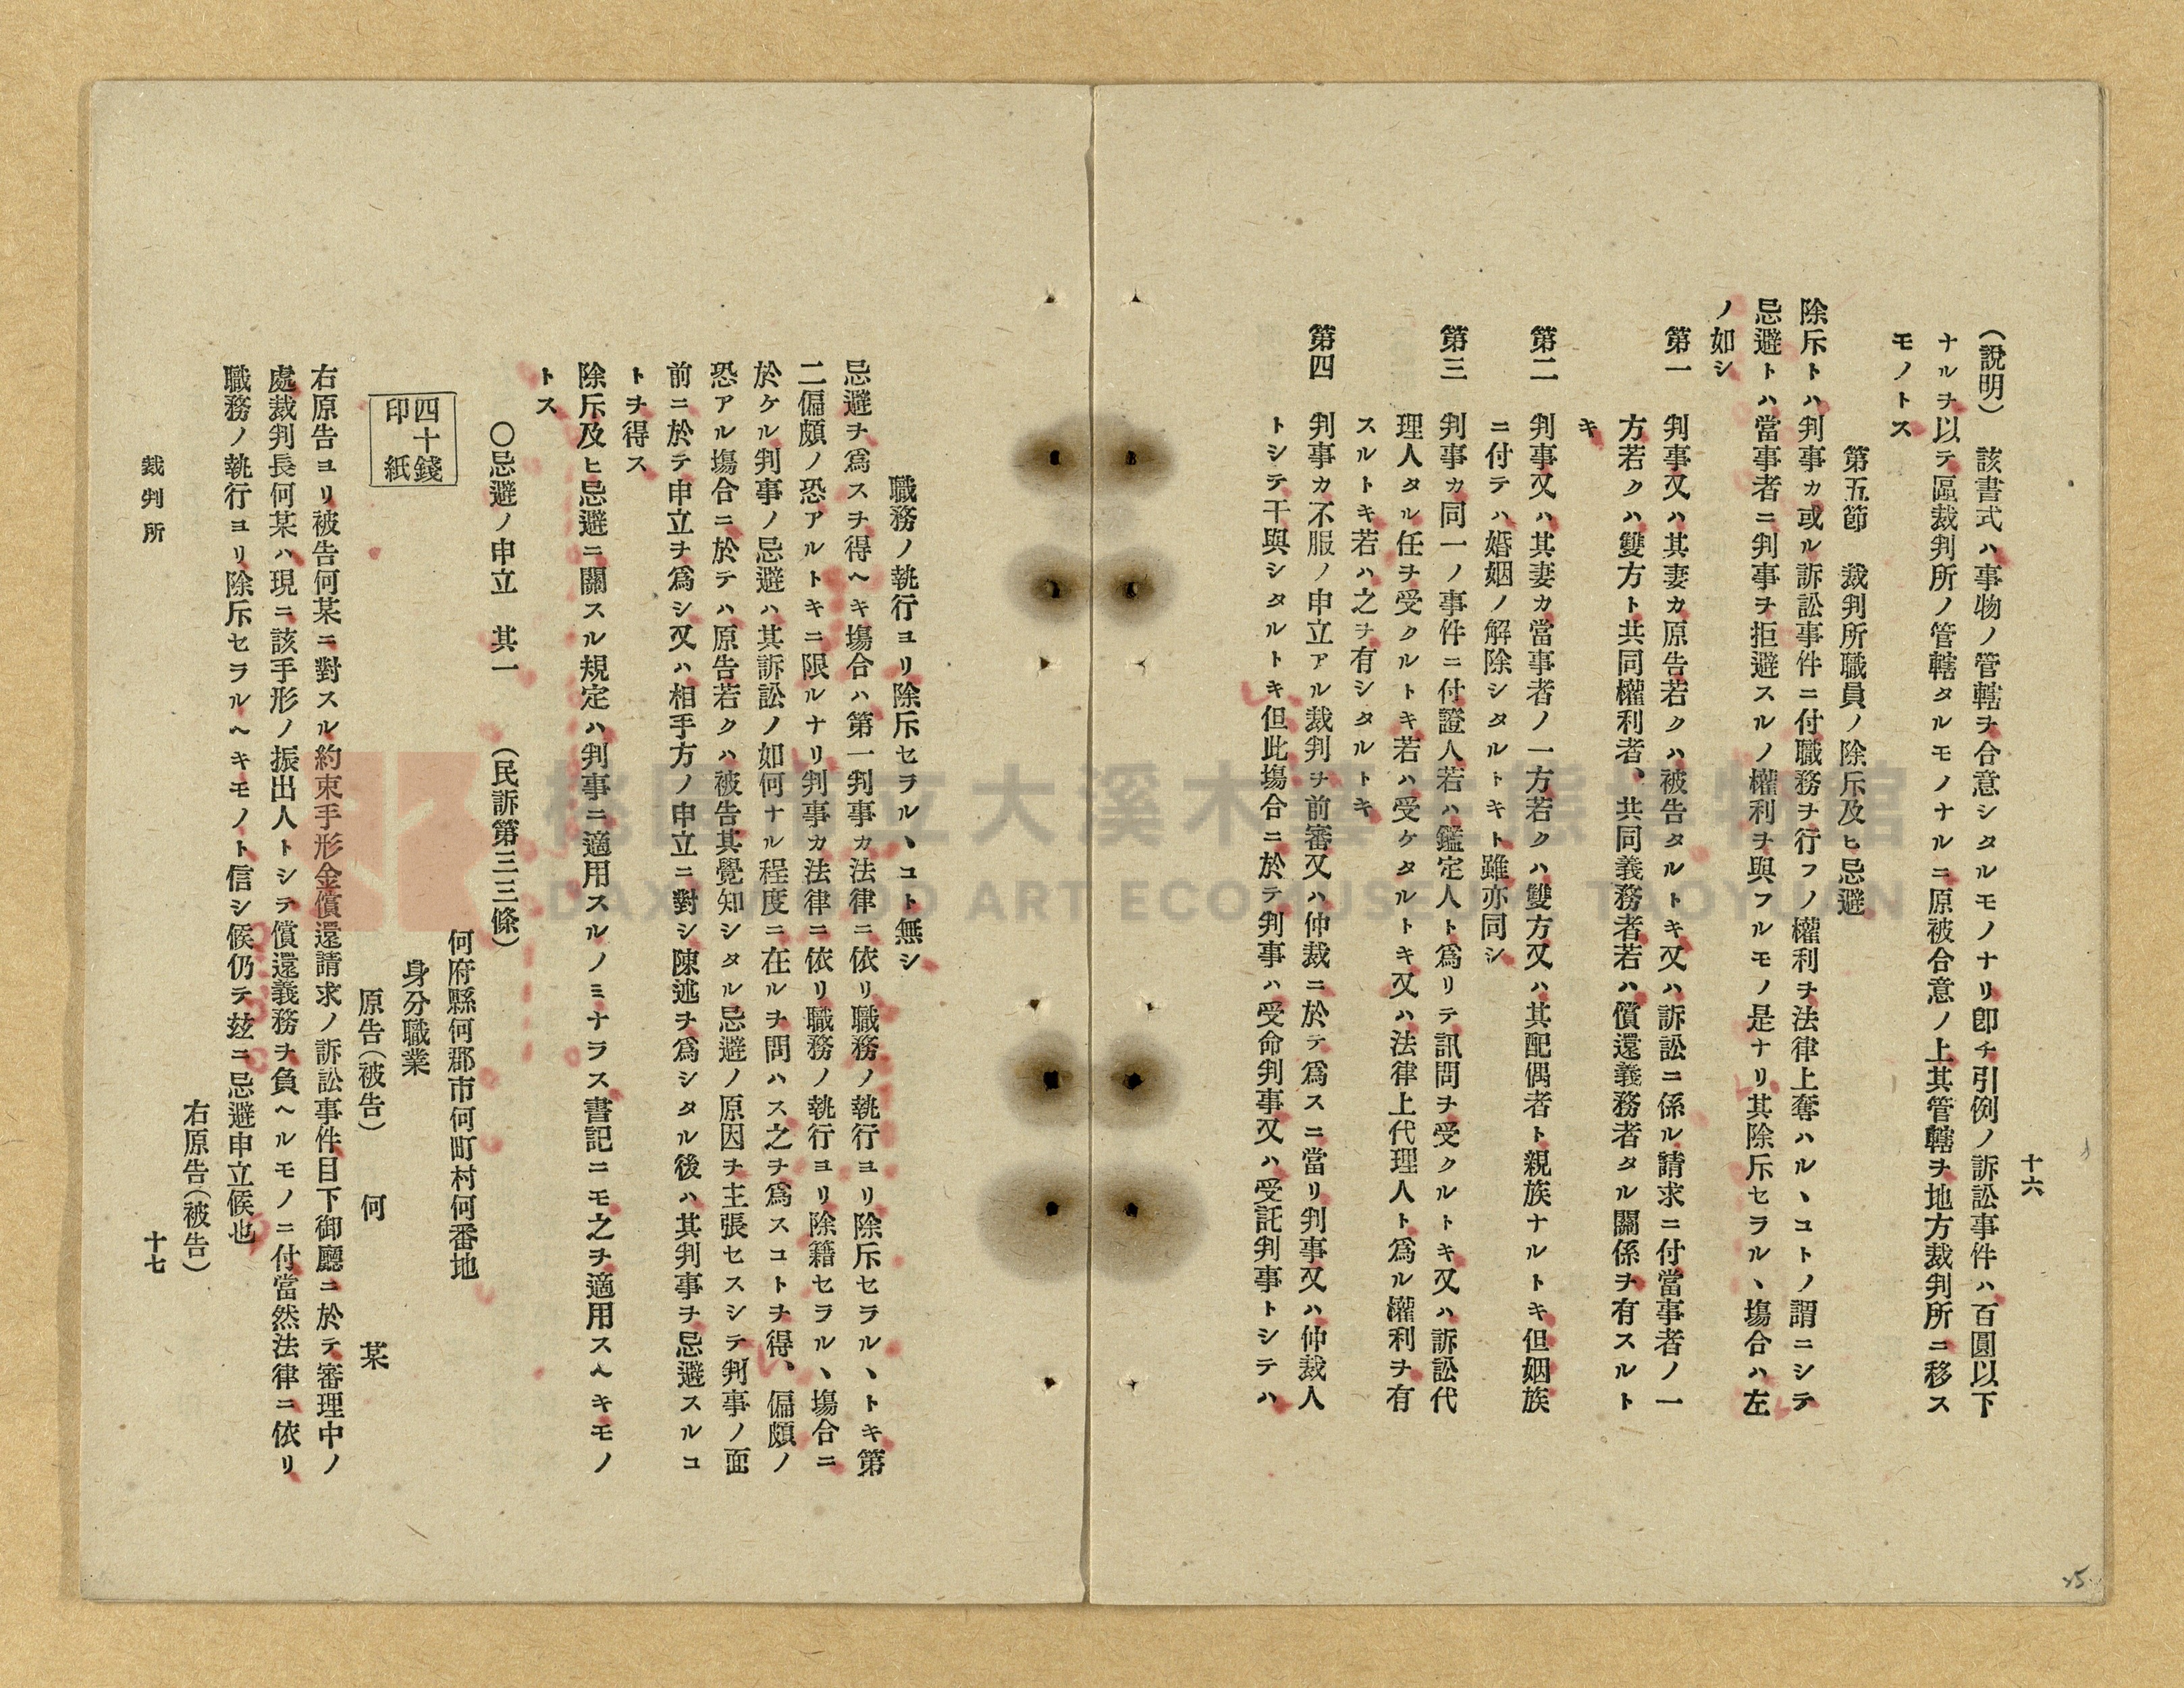 十六
(說明)　該書式ハ事物ノ管轄ヲ合意シタルモノナリ卽チ引例ノ訴訟事件ハ百圓以下
ナルヲ以テ區裁判所ノ管轄タルモノナルニ原被合意ノ上其管轄ヲ地方裁判所ニ移ス
モノトス
第五節　裁判所職員ノ除斥及ヒ忌避
除斥トハ判事カ或ル訴訟事件ニ付職務ヲ行フノ權利ヲ法律上奪ハルヽコトノ謂ニシテ
忌避トハ當事者ニ判事ヲ拒避スルノ權利ヲ與フルモノ是ナリ其除斥セラルヽ塲合ハ左
ノ如シ
第一　判事又ハ其妻カ原告若クハ被告タルトキ又ハ訴訟ニ係ル請求ニ付當事者ノ一
方若クハ雙方ト共同權利者、共同義務者若ハ償還義務者タル關係ヲ有スルト
キ
第二　判事又ハ其妻カ當事者ノ一方若クハ雙方又ハ其配偶者ト親族ナルトキ但姻族
ニ付テハ婚姻ノ解除シタルトキト雖亦同シ
第三　判事カ同一ノ事件ニ付證人若ハ鑑定人ト爲リテ訊問ヲ受クルトキ又ハ訴訟代
理人タル任ヲ受クルトキ若ハ受ケタルトキ又ハ法律上代理人ト爲ル權利ヲ有
スルトキ若ハ之ヲ有シタルトキ
第四　判事カ不服ノ申立アル裁判ヲ前審又ハ仲裁ニ於テ爲スニ當リ判事又ハ仲裁人
トシテ干與シタルトキ但此塲合ニ於テ判事ハ受命判事又ハ受託判事トシテハ
職務ノ執行ヨリ除斥セラルヽコト無シ
忌避ヲ爲スヲ得ヘキ塲合ハ第一判事カ法律ニ依リ職務ノ執行ヨリ除斥セラルヽトキ第
二偏頗ノ恐アルトキニ限ルナリ判事カ法律ニ依リ職務ノ執行ヨリ除籍セラルヽ塲合ニ
於ケル判事ノ忌避ハ其訴訟ノ如何ナル程度ニ在ルヲ問ハス之ヲ爲スコトヲ得、偏頗ノ
恐アル塲合ニ於テハ原告若クハ被告其覺知シタル忌避ノ原因ヲ主張セスシテ判事ノ面
前ニ於テ申立ヲ爲シ又ハ相手方ノ申立ニ對シ陳述ヲ爲シタル後ハ其判事ヲ忌避スルコ
トヲ得ス
除斥及ヒ忌避ニ關スル規定ハ判事ニ適用スルノミナラス書記ニモ之ヲ適用スヘキモノ
トス
〇忌避ノ申立　其一　(民訴第三三條)
四十錢
印紙
何府縣何郡市何町村何番地
身分職業
原告(被告)　何　某
右原告ヨリ被告何某ニ對スル約束手形金償還請求ノ訴訟事件目下御廳ニ於テ審理中ノ
處裁判長何某ハ現ニ該手形ノ振出人トシテ償還義務ヲ負ヘルモノニ付當然法律ニ依リ
職務ノ執行ヨリ除斥セラルヘキモノト信シ候仍テ玆ニ忌避申立候也
右原告(被告)
裁判所
十七
25